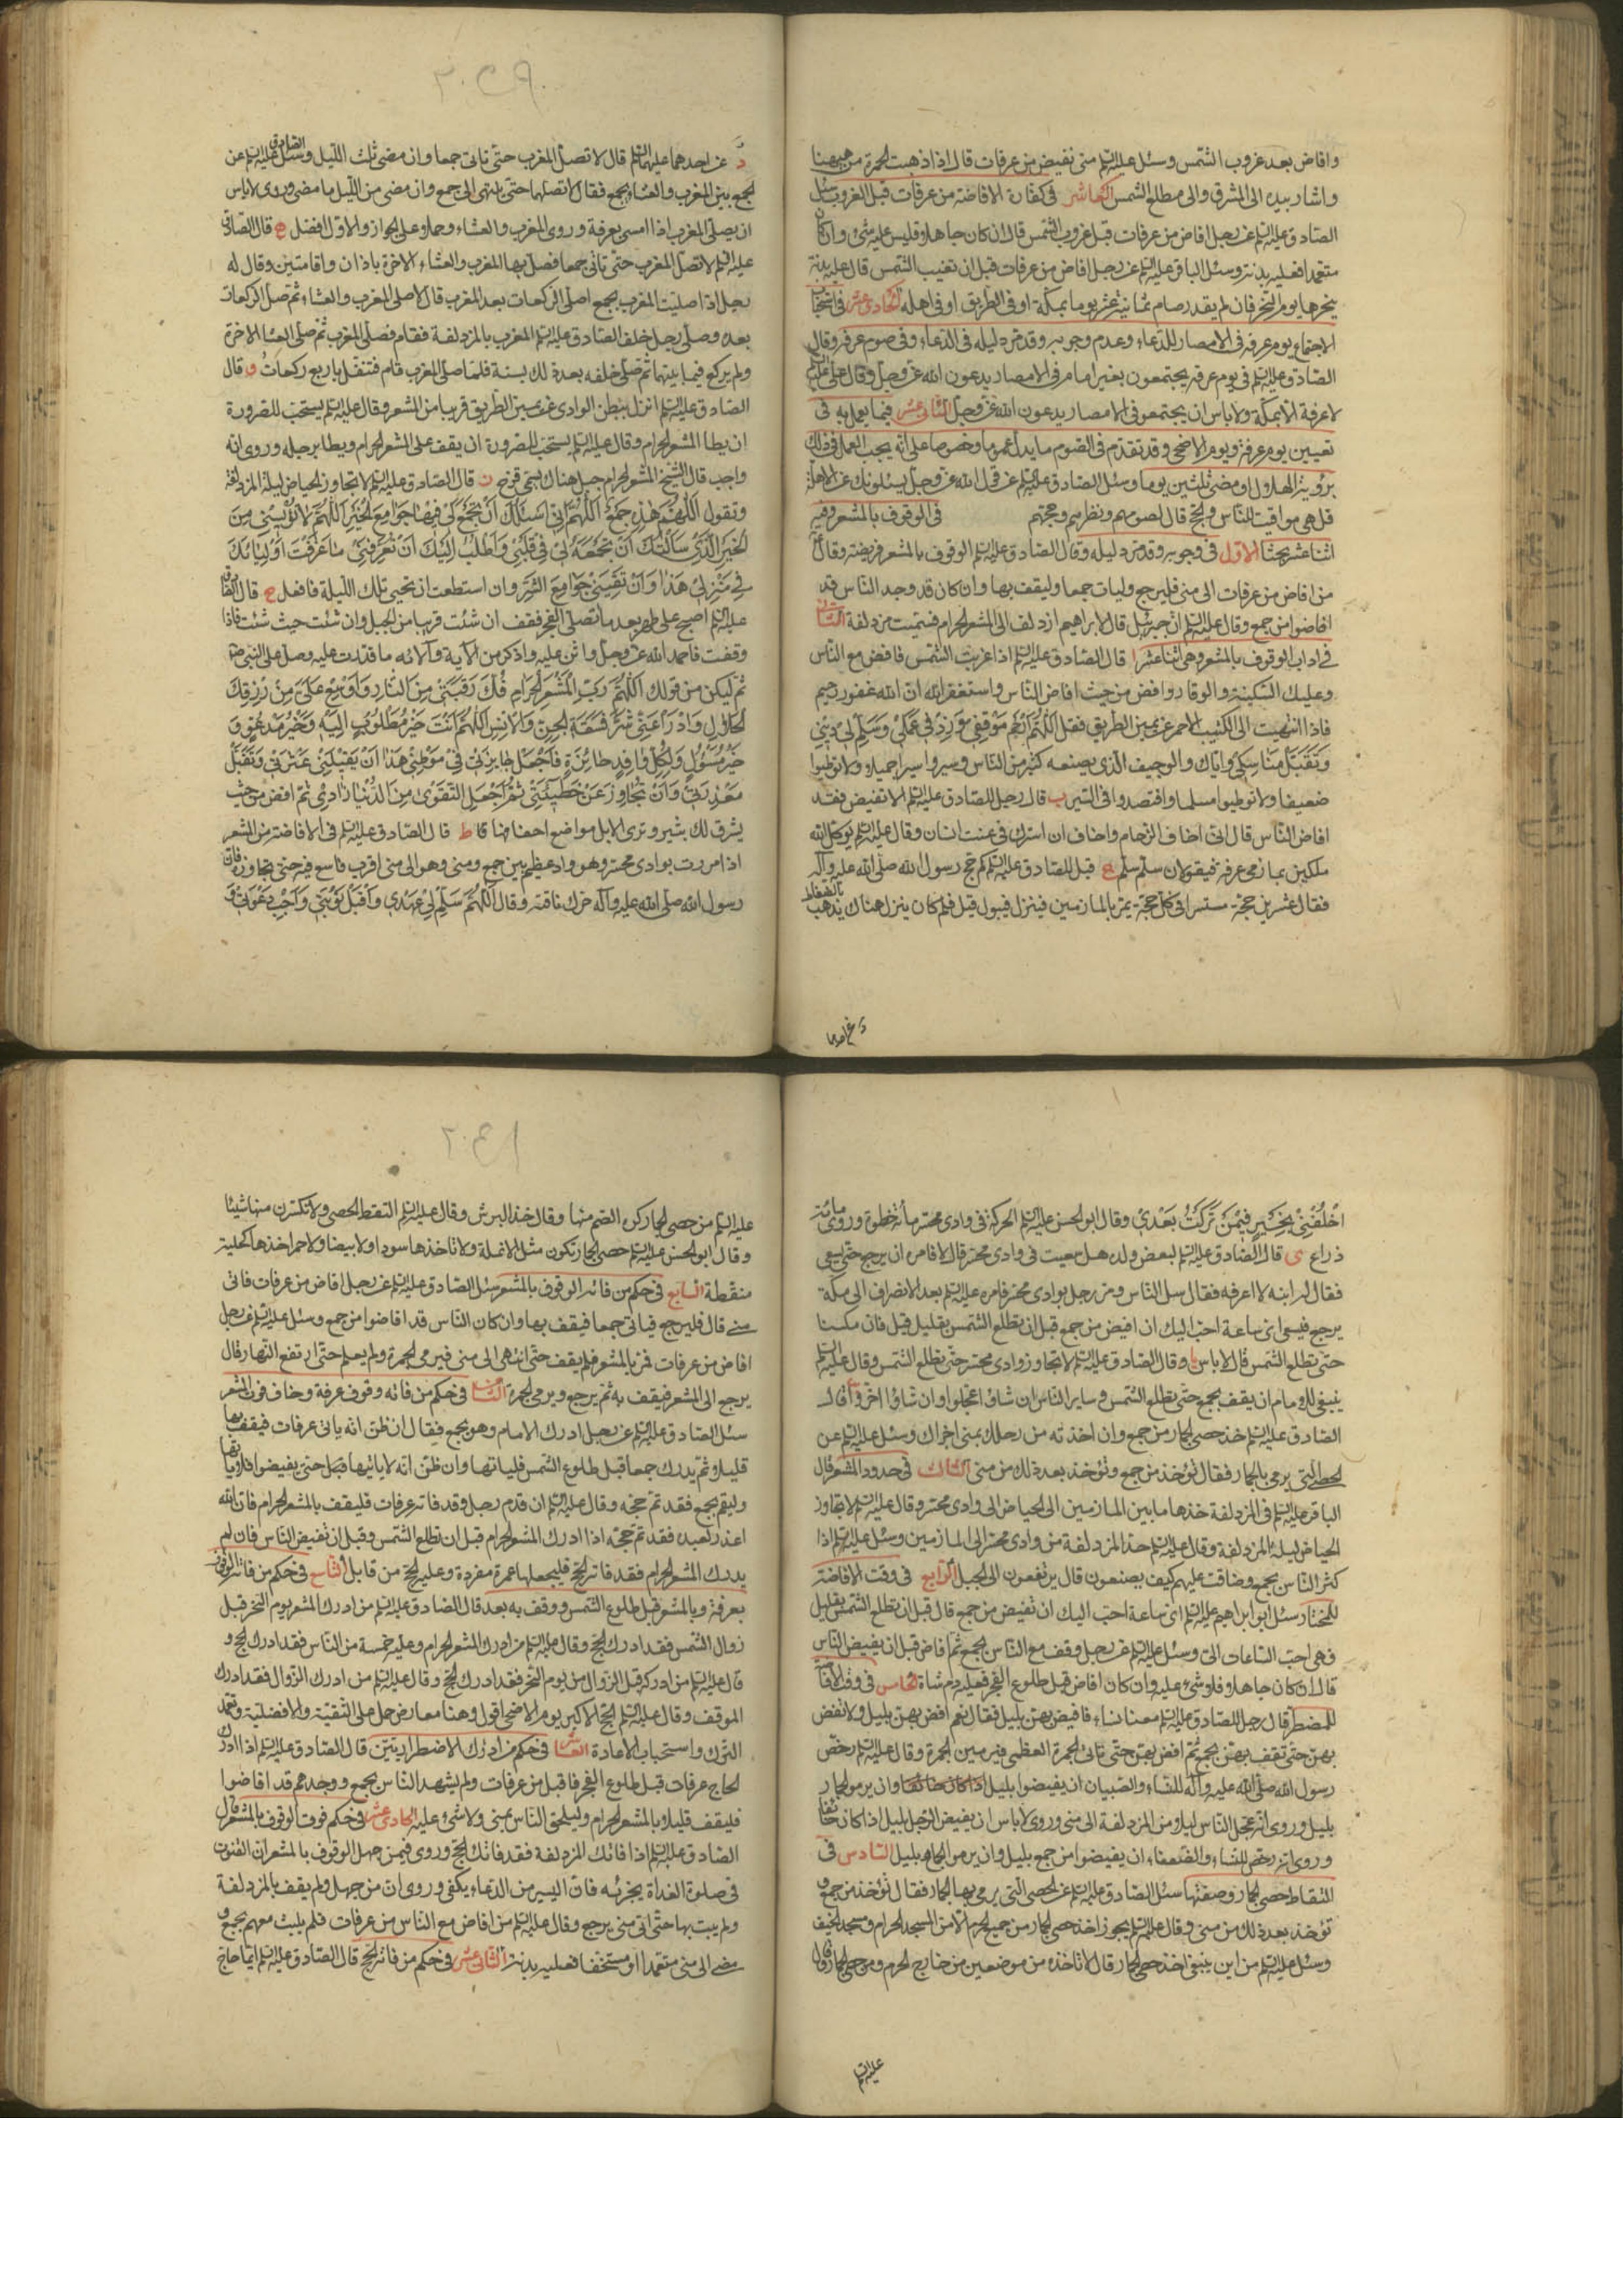 وافاض بعد غروب الشمس وسئل عليه السلم متى نفيض من عرفات قال اذا ذهبت الحمرة من ههنا
واشار بيده الى المشرق والى مطلع الشمس العاشر فى كفارة الافاضة من عرفات قبل الغروب سئل
الصادق عليه السلم عن رجل افاض من عرفات قبل غروب الشمس قال ان كان جاهلا فليس عليه شئ وان كان
متعمدا فعليه بدنة وسئل الباقر عليه السلم عن رجل افاض من عرفات قبل ان تغيب الشمس قال عليه بدنة
ينحرها يوم النحر فان لم يقدر صام ثمانية عشر يوما بمكة او فى الطريق او فى اهله الحادى عشر فى استحباب
الاجتماع يوم عرفة فى الامصار للدعاء وعدم وجوبه وقد مر دليله فى الدعاء وفى صوم عرفة وقال
الصادق عليه السلم فى يوم عرفة يجتمعون بغير امام فى الامصار يدعون الله عز وجل وقال على عليه السلم
لا عرفة الا بمكة ولا باس ان يجتمعو فى الامصار يدعون الله عز وجل الثانى عشر فيما يعمل به فى
تعيين يوم عرفة ويوم الاضحى وقد تقدم فى الصوم ما يدل عموما وخصوصا على انه يجب العمل فى ذلك
برؤية الهلال او مضى ثلثين يوما وسئل الصادق عليه السلم عن قول الله عز وجل يسئلونك عن الاهلة
قل هى مواقيت للناس والحج قال لصومهم وفطرهم وحجهم فى الوقوف بالمشعر وفيه
اثنا عشر بحثا الاول فى وجوبه وقد مر دليله وقال الصادق عليه السلم الوقوف بالمشعر فريضة وقال
من افاض من عرفات الى منى فليرجع وليات جمعا وليقف بها وان كان قد وجد الناس قد
افاضوا من جمع وقال عليه السلم ان جبرئيل قال لابراهيم ازدلف الى المشعر الحرام فسميت مزدلفة الثانى
فى اداب الوقوف بالمشعر وهى اثنا عشر ا قال الصادق عليه السلم اذا غربت الشمس فافض مع الناس
وعليك السكينة والوقار وافض من حيث افاض الناس واستغفر الله ان الله غفور رحيم
فاذا انتهيت الى الكثيب الاحمر عن يمين الطريق فقل اللهم ارحم موقفى وزد فى عملى وسلم لى دينى
وتقبل مناسكى واياك والوجيف الذى يصنعه كثير من الناس وسيروا سيرا جميلا ولا توطئوا
ضعيفا ولا توطئوا مسلما واقتصدوا فى السير ب قال رجل للصادق عليه السلم الا تفيض فقد
افاض الناس قال انى اخاف الزحام واخاف ان اشرك فى عنت انسان وقال عليه السلم يوكل الله
ملكين بمازمى عرفة فيقولان سلم سلم ج قيل للصادق عليه السلم كم حج رسول الله صلى الله عليه وآله
فقال عشرين حجة مستسرا فى كل حجة يمر بالمازمين فينزل فيبول قيل فلم كان ينزل هناك يذهب
بالضغاط
د عن احدهما
د عن احدهما عليهما السلم قال لا تصل المغرب حتى تاتى جمعا وان مضى ثلث الليل وسئل الصادق عليه السلم عن
الجمع بين المغرب والعشاء بجمع فقال لا تصلهما حتى تنتهى الى جمع وان مضى من الليل ما مضى وروى لا باس
ان يصلى المغرب اذا امسى بعرفة وروى المغرب والعشاء وحملا على الجواز والاول افضل ه قال الصادق
عليه السلم لا تصل المغرب حتى تاتى جمعا فصل بها المغرب والعشاء الاخرة باذان واقامتين وقال له
رجل اذا صليت المغرب بجمع اصلى الركعات بعد المغرب قال لا صلى المغرب والعشاء ثم صل الركعات
بعد وصلى رجل خلف الصادق عليه السلم المغرب بالمزدلفة فقام فصلى المغرب ثم صلى العشاء الاخرة
ولم يركع فيما بينهما ثم صلى خلفه بعد ذلك بسنة فلما صلى المغرب قام فتنفل باربع ركعات و قال
الصادق عليه السلم انزل ببطن الوادى عن يمين الطريق قريبا من المشعر وقال عليه السلم يستحب للصرورة
ان يطا المشعر الحرام وقال عليه السلم يستحب للصرورة ان يقف على المشعر الحرام ويطا برجله وروى انه
واجب قال الشيخ المشعر الحرام جبل هناك يسمى قزح ز قال الصادق عليه السلم لا تجاوز الحياض ليلة المزدلفة
وتقول اللهم هذه جمع اللهم انى اسئلك ان تجمع لى فيها جوامع الخير اللهم لا تؤيسنى من
الخير الذى سالتك ان تجمعه لى فى قلبى واطلب اليك ان تعرفنى ما عرفت اوليائك
فى منزلى هذا وان تقينى جوامع الشر وان استطعت ان تحيى تلك الليلة فافعل ح قال الصادق
عليه السلم اصبح على طهر بعد ما تصلى الفجر فقف ان شئت قريبا من الجبل وان شئت حيث شئت فاذا
وقفت فاحمد الله عز وجل واثن عليه واذكر من آلائه ما قدرت عليه وصل على النبى
ثم ليكن من قولك اللهم رب المشعر الحرام فك رقبتى من النار واوسع على من رزقك
الحلال وادرأ عنى شر فسقة الجن والانس اللهم انت خير مطلوب اليه وخير مدعو و
خير مسؤل ولكل وافد جائزة فاجعل جايزتى فى موطنى هذا ان تقيلنى عثرتى وتقبل
معذرتى وان تجاوز عن خطيئتى ثم اجعل التقوى من الدنيا زادى ثم افض حيث
يشرق لك ثبير وترى الابل مواضع اخفافها ط قال الصادق عليه السلم فى الافاضة من المشعر
اذا مررت بوادى محسر وهو واد عظيم بين جمع ومنى وهو الى منى اقرب فاسع فيه حتى تجاوزه فان
رسول الله صلى الله عليه وآله حرك ناقته وقال اللهم سلم لى عهدى واقبل توبتى واجب دعوتى و
اخلفنى بخير فيمن تركت بعدى وقال ابو الحسن عليه السلم الحركة فى وادى محسر مأة خطوة وروى مائة
ذراع ى قال الصادق عليه السلم لبعض ولده هل سعيت فى وادى محسر قال لا فامره ان يرجع حتى يسعى
فقال له ابنه لا اعرفه فقال سل الناس ومر رجل بوادى محسر فامره عليه السلم بعد الانصراف الى مكة
يرجع فيسعى اى ساعة احب اليك ان افيض من جمع قبل ان تطلع الشمس بقليل قيل فان مكثنا
حتى تطلع الشمس قال لا باس يا وقال الصادق عليه السلم لا تجاوز وادى محسر حتى تطلع الشمس وقال عليه السلم
ينبغى للامام ان يقف بجمع حتى تطلع الشمس وساير الناس ان شاؤا عجلوا وان شاؤا اخروا قال
الصادق عليه السلم خذ حصى الجمار من جمع وان اخذته من رحلك بمنى اجزاك وسئل عليه السلم عن
الحصى التى يرمى بها الجمار فقال تؤخذ من جمع وتؤخذ بعد ذلك من منى الثالث فى حدود المشعر قال
الباقر عليه السلم فى المزدلفة خذها ما بين المازمين الى الحياض الى وادى محسر وقال عليه السلم لا تجاوز
الحياض ليلة المزدلفة وقال عليه السلم حد المزدلفة من وادى محسر الى المازمين وسئل عليه السلم اذا
كثر الناس بجمع وضاقت عليهم كيف يصنعون قال يرتفعون الى الجبل الرابع فى وقت الافاضة
للمختار سئل ابو ابراهيم عليه السلم اى ساعة احب اليك ان تفيض من جمع قال قبل ان تطلع الشمس بقليل
فهى احب الساعات الى وسئل عليه السلم عن رجل وقف مع الناس بجمع ثم افاض قبل ان يفيض الناس
قال ان كان جاهلا فلا شئ عليه وان كان افاض قبل طلوع الفجر فعليه دم شاة الخامس فى وقت الافاضة
للمضطر قال رجل للصادق عليه السلم معنا نساء فافيض بهن بليل فقال نعم افض بهن بليل ولا تفض
بهن حتى تقف بهن بجمع ثم افض بهن حتى تاتى الجمرة العظمى فيرمين الجمرة وقال عليه السلم رخص
رسول الله صلى الله عليه وآله للنساء والصبيان ان يفيضوا بليل اذا كان خائفا وان يرموا الجمار
بليل وروى انه عجل الناس ليلا من المزدلفة الى منى وروى لا باس ان يفيض الرجل بليل اذا كان خائفا
وروى انه رخص للنساء والضعفاء ان يفيضوا من جمع بليل وان يرموا الجمار بليل السادس فى
التقاط حصى الجمار وصفتها سئل الصادق عليه السلم عن الحصى التى يرمى بها الجمار فقال تؤخذ من جمع و
تؤخذ بعد ذلك من منى وقال عليه السلم يجوز اخذ حصى الجمار من جميع الحرم الا من المسجد الحرام ومسجد الخيف
وسئل عليه السلم من اين ينبغى اخذ حصى الجمار قال لا تاخذه من موضعين من خارج الحرم ومن حصى الجمار وقال
عليه السلم
عليه السلم من حصى الجمار كره الصم منها وقال خذ البرش وقال عليه السلم التقط الحصى ولا تكسرن منها شيئا
وقال ابو الحسن عليه السلم حصى الجمار تكون مثل الانملة ولا تاخذها سودا ولا بيضا ولا حمرا خذها كحلية
منقطة السابع فى حكم من فاته الوقوف بالمشعر سئل الصادق عليه السلم عن رجل افاض من عرفات فاتى
منى قال فليرجع فياتى جمعا فيقف بها وان كان الناس قد افاضوا من جمع وسئل عليه السلم عن رجل
افاض من عرفات فمر بالمشعر فلم يقف حتى انتهى الى منى فرمى الجمرة ولم يعلم حتى ارتفع النهار قال
يرجع الى المشعر فيقف به ثم يرجع ويرمى الجمرة الثامن فى حكم من فاته وقوف عرفة وخاف فوت المشعر
سئل الصادق عليه السلم عن رجل ادرك الامام وهو بجمع فقال ان ظن انه ياتى عرفات فيقف بها
قليلا ثم يدرك جمعا قبل طلوع الشمس فلياتها وان ظن انه لا ياتيها حتى يفيضوا فلا ياتها
وليقم بجمع فقد تم حجه وقال عليه السلم ان قدم رجل وقد فاته عرفات فليقف بالمشعر الحرام فان الله
اعذر لعبده فقد تم حجه اذا ادرك المشعر الحرام قبل ان تطلع الشمس وقبل ان تفيض الناس فان لم
يدرك المشعر الحرام فقد فاته الحج فليجعلها عمرة مفردة وعليه الحج من قابل التاسع فى حكم من فاته الوقوف
بعرفة وبالمشعر قبل طلوع الشمس ووقف به بعد قال الصادق عليه السلم من ادرك المشعر يوم النحر قبل
زوال الشمس فقد ادرك الحج وقال عليه السلم من ادرك المشعر الحرام وعليه خمسة من الناس فقد ادرك الحج و
قال عليه السلم من ادركه قبل الزوال من يوم النحر فقد ادرك الحج وقال عليه السلم من ادرك الزوال فقد ادرك
الموقف وقال عليه السلم الحج الاكبر يوم الاضحى اقول وهنا معارض حمل على التقية والافضلية وتعمد
الترك واستحباب الاعادة العاشر فى حكم من ادرك الاضطراريتين قال الصادق عليه السلم اذا ادرك
الحاج عرفات قبل طلوع الفجر فاقبل من عرفات ولم يشهد الناس بجمع ووجدهم قد افاضوا
فليقف قليلا بالمشعر الحرام وليلحق الناس بمنى ولا شئ عليه الحادى عشر فى حكم فوت الوقوف بالمشعر قال
الصادق عليه السلم اذا فاتك المزدلفة فقد فاتك الحج وروى فيمن جهل الوقوف بالمشعر ان القنوت
فى صلوة الغداة يجزيه فان اليسير من الدعاء يكفى وروى ان من جهل ولم يقف بالمزدلفة
ولم يبت بها حتى اتى منى يرجع وقال عليه السلم من افاض مع الناس من عرفات فلم يلبث معهم بجمع و
مضى الى منى متعمدا او مستخفا فعليه بدنة الثانى عشر فى حكم من فاته الحج قال الصادق عليه السلم ايما حاج